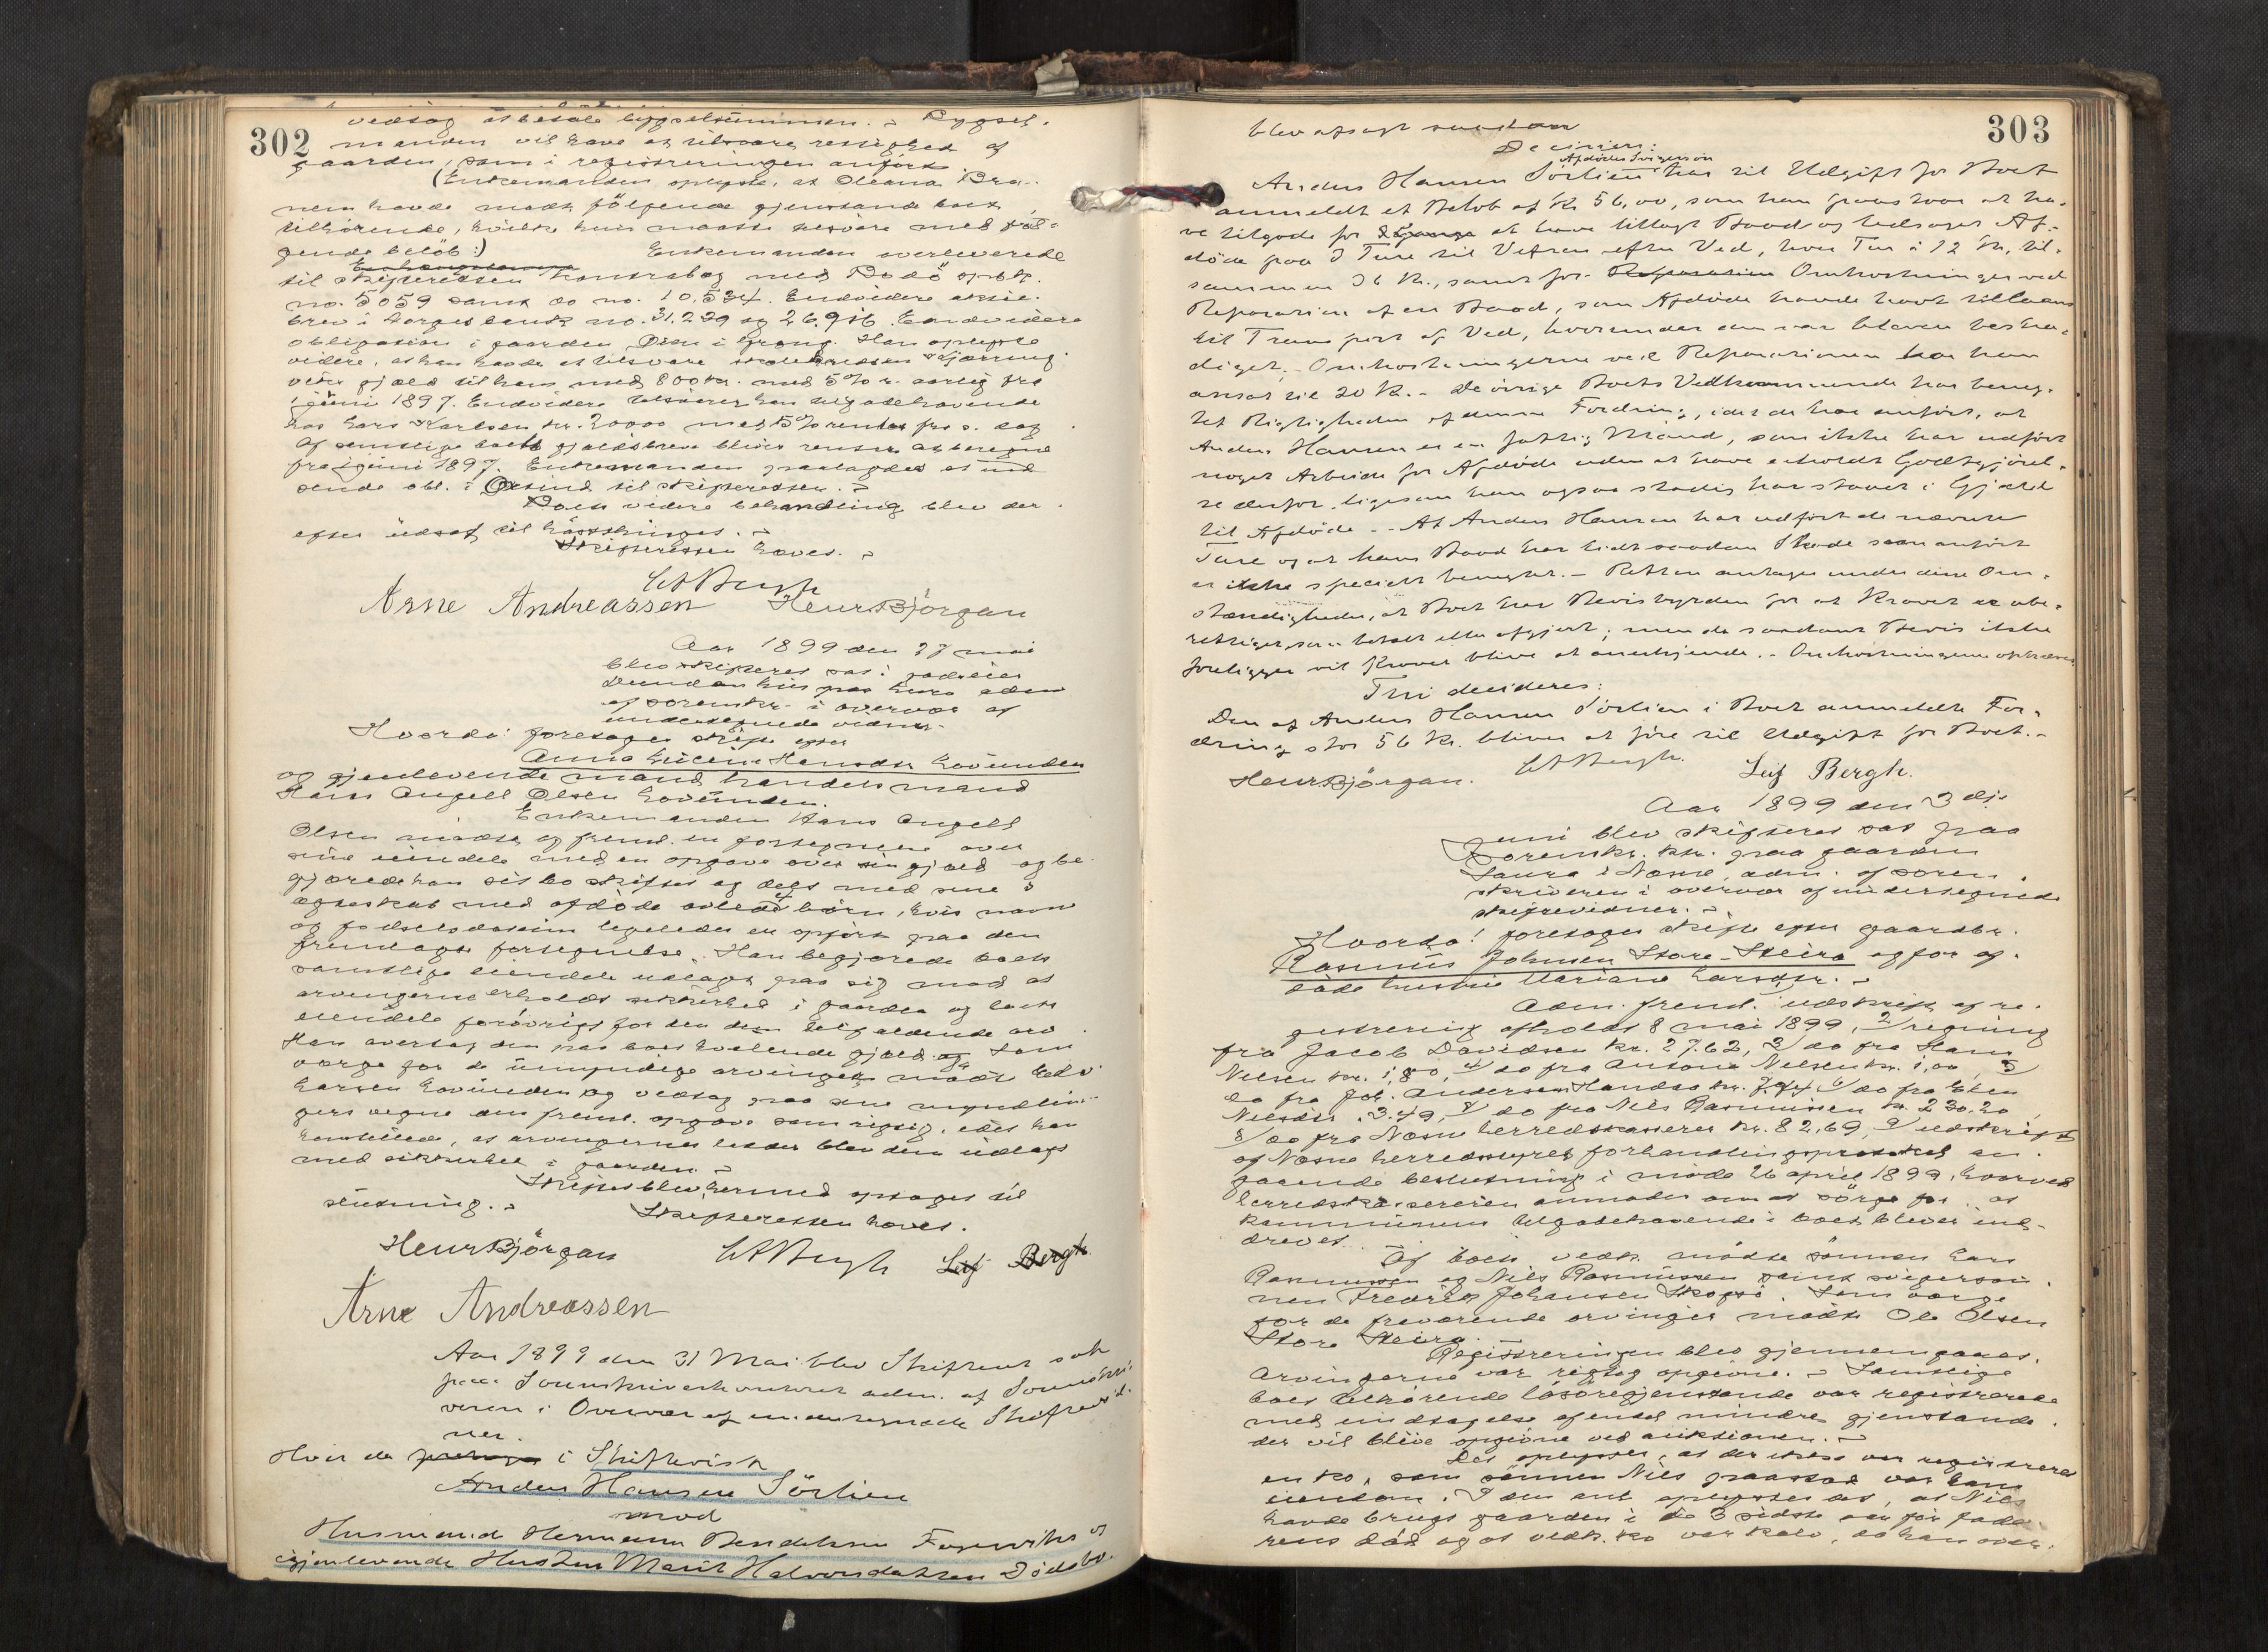 302
vedtog at betale bygselsummen. - Bygsel-
manden vil have at tilsvare rettighed af
gaarden, som i registreringen anført.
(Enkemanden oplyste, at Oleana Bra-
nem havde modt. følgende gjenstande boet
tilhørende, hvilke hun maatte tilsvare med føl-
gende beløb:) Enkemanden overleverede
til skifteretten kontrabog med Bodö spbk.
no. 5059 samt do no. 10,534. Endvidere aktie-
brev i Norges bank no. 31.229 og 26.916. Endvidere
obligation i gaarden Øien i Grong. Han oplyste
videre, at han havde at tilsvare
gjæld til ham med 800 kr. med 5% r. aarlig fra
1 juni 1897. Endvidere tilsvarer han tilgodehavende
hos Lars Karlsen kr. 20000 med 5% renter fra s. dag
Af samtlige boets gjældsbreve bliver renter at beregne
fra 1 juni 1897. Enkemanden paalagdes at ind
sende obl. i til skifteretten. -
Boets videre behandling blev der-
efter udsat til høstthinget. -
Skifteretten hævet. -
Arne Andreassen Henr. Bjørgan
Aar 1899 den 27 mai
blev skifteret sat i gadeeier
hus paa adm
af sorenskr. i overvær af
undertegnede vidner.
Hvorda: foretoges skifte efter
Anna Lucine Hansdtr Lovunden
og gjenlevende mand handelsmand
Hans Angell Olsen Lovunden.
Enkemanden Hans Angell
Olsen mødte og freml. en fortegnelse over
sine eiendele med en opgave over sin gjæld og be-
gjærede han sit bo skiftet og delt med sine i
ægteskab med afdøde avlede børn, hvis navn
og fødselsdatum ligeledes er opført paa den
fremlagte fortegnelse. Han begjærede boets
samtlige eiendele udlagt paa sig mod at
arvingerne erholdt sikkerhed i gaarden og boets
eiendele forøvrigt for den dem tilfaldende arv.
Han overtog den paa boet hvilende gjæld. Som
værge for de umyndige arvinger mødte Edv.
Larsen Lovunden og vedtog paa sine myndlin-
gers vegne den freml. opgave som rigtig, idet han
henstillede, at arvingernes lodder blev dem udlagt
med sikkerhet i gaarden. -
Skiftet blev hermed optaget til
slutning. - Skifteretten hævet.
Henr Bjørgan Leif Bergh
Arne Andreassen
Aar 1899 den 31 Mai blev Skifteret sat
paa Sorenskriverkontoret adm. af Sorenskri-
veren i Overvær af undertegnede Skiftevid-
ner.
Hvor da foretoges i Skiftetvist
Anders Hansen Sörlien
mod
Husmand Hermann Bendiksen Fagervika og
gjenlevende Hustru Marit Halvorsdatters Dödsbo.
303
blev afsagt saadan
Decision:
Afdödes Svigersön
Anders Hansen Sörlien har til Udgift for Boet
anmeldt et Beløb af Kr 56,00, som han paastaar at ha-
ve tilgode for at have tillagt Baad og ledsaget Af-
døde paa 3 Ture til Vefsen efter Ved, hver Tur à 12 Kr, til-
sammen 36 Kr., samt for Reparation Omkostninger ved
Reparation af en Baad, som Afdøde havde havt tillaans
til Transport af Ved, hvorunder den var bleven beska-
diget. Omkostningerne ved Reparationen har han
ansat til 20 Kr. - De øvrige Boets Vedkommende har benæg-
tet Rigtigheden af denne Fordring, idet de har anført, at
Anders Hansen er en fattig Mand, som ikke har udført
noget Arbeide for Afdøde uden at have erholdt Godtgjørel-
se derfor, ligesom han ogsaa stadig har staaet i Gjæld
til Afdøde. - At Anders Hansen har udført de nævnte
Ture og at hans Baad har lidt saadan Skade som anført
er ikke specielt benægtet. - Retten antager under disse Om-
stændigheder, at Boet har Bevisbyrden for at Kravet er ube-
rettiget, som betalt eller afgjort; men da saadant Bevis ikke
foreligger vil Kravet blive at anerkjende. - Omkostningerne ophæves.
Thi decideres:
Den af Anders Hansen Sörlien i Boet anmeldte For-
dring stor 56 Kr. bliver at føre til Udgift for Boet. -
Henr Bjørgan. Leif Bergh.
Aar 1899 den 3 dje
juni blev skifteret sat paa
Sorenskr. ktr. paa gaarden
Saura i Næsne, adm. af soren-
skriveren i overvær af undertegnede
skiftevidner. -
Hvorda! foretoges skifte efter gaardbr.
Rasmus Johnsen Store-Steira og før af-
døde hustru Mariane Larsdtr. -
Adm. freml. udskrift af re-
gistrering afholdt 8 mai 1899, 2/ regning
fra Jacob Davidsen kr. 27.62, 3/ do fra Hans
Nilsen kr. 1,80, 4/ do fra Antone Nilsen kr. 1,00, 5/
do fra Joh. Andersen Handsø kr. 7.94 6/ do fra Ellen
Nilsdtr. 3.49, 7/ do fra Nils Rasmussen kr. 230.20
8/ do fra Næsne herredskasserer kr. 82,69, 9/ udskrift
af Næsne herredstyres forhandlingsprotokol an-
gaaende beslutning i møde 26 april 1899, hvorved
herredskassereren anmodes om at sørge for, at
kommunens tilgodehavende i boet blever ind-
drevet.
Af boets vedk. mødte sønnen Lars
Rasmussen og Nils Rasmussen samt svigersøn-
nen Fredrik Johansen Skogsø. Som værge
for de fraværende arvinger mødte Ole Olsen
Store Steira.
Registreringen blev gjennemgaaet.
Arvingerne var rigtig opgivne. - Samtlige
boet tilhørende løsøregjenstande var registrerede
med undtagelse af endel mindre gjenstande
der vil blive opgivne ved auktionen. -
Det oplystes, at der ikke var registreret
en ko, som sønnen Nils paastod var hans
eiendom. I den anl. oplystes det, at Nils
havde brugt gaarden i de 3 sidste aar før fade-
rens død og at vedk. ko var kalv, da han over-